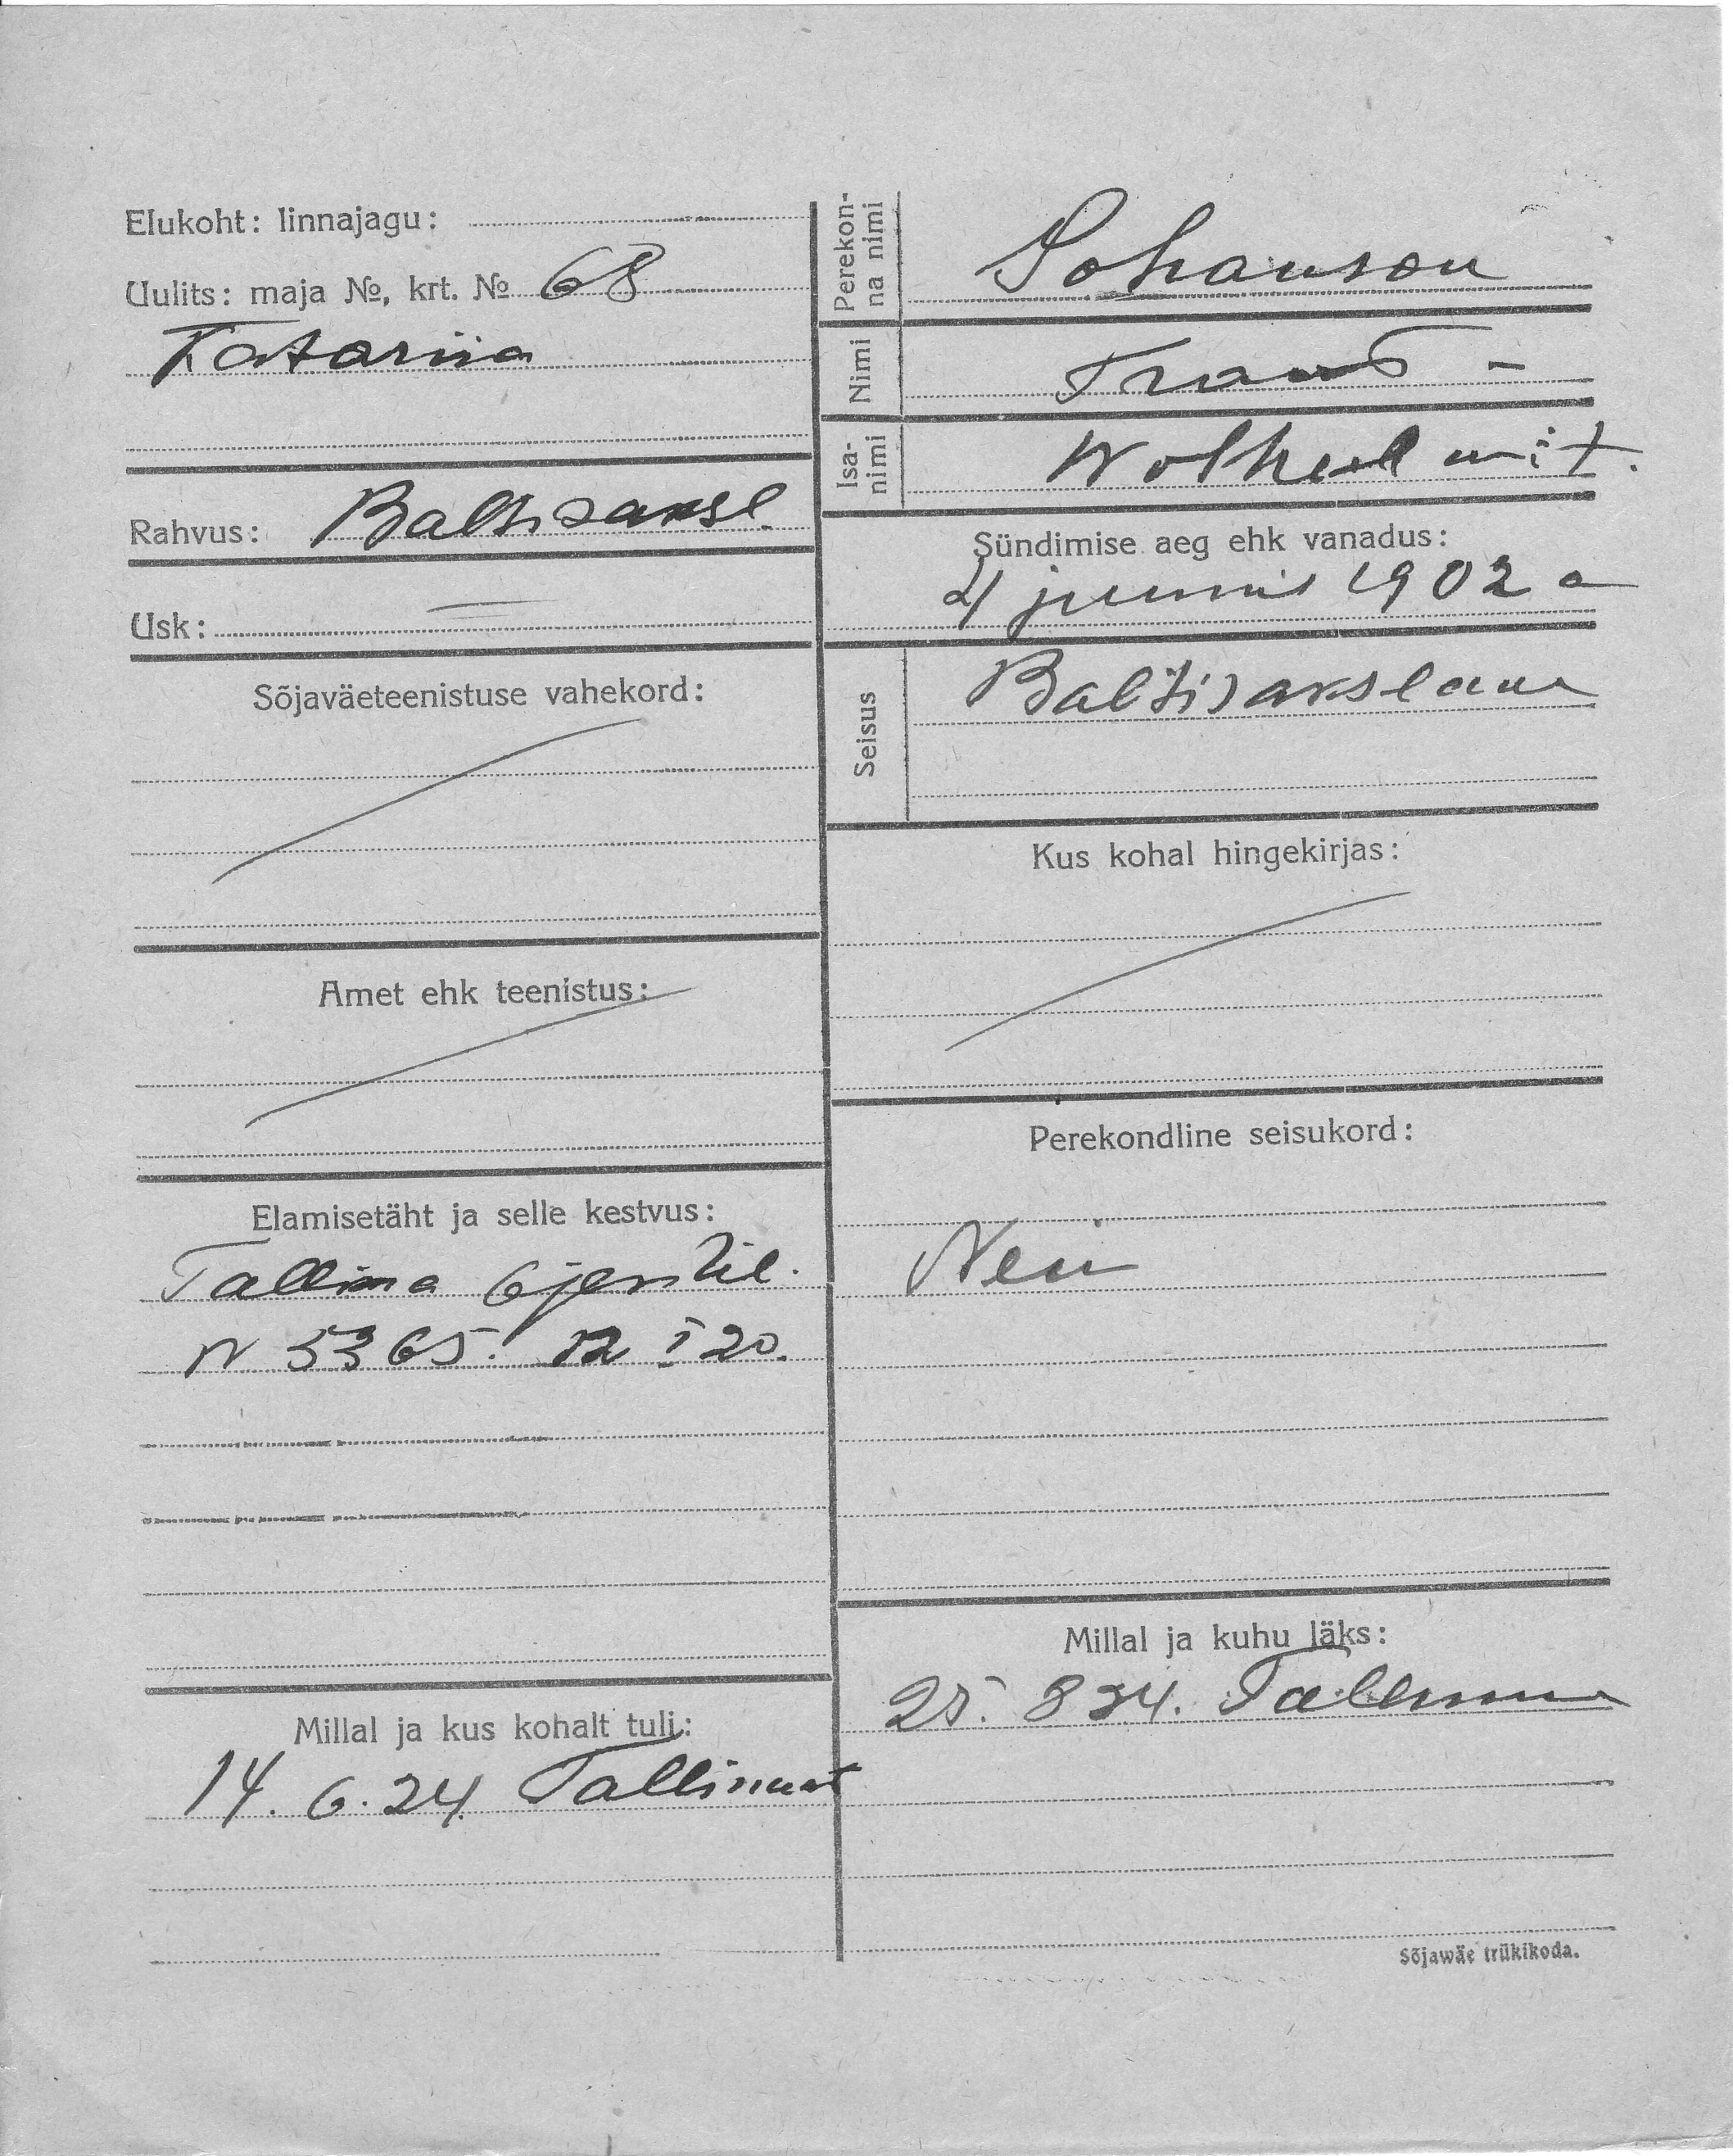 Elukoht: linnajagu:
Uulits: maja №, krt. № 68
Katariina
Rahvus: Baltisaksl.
Usk: —
Sõjaväeteenistuse vahekord:
Amet ehk teenistus:
Elamisetäht ja selle kestvus:
Tallinna 6 jsk
N 5365. 12 I 20.
Millal ja kus kohalt tuli:
14. 6. 24. Tallinnast
Perekon-
na nimi
Johanson
Nimi
Isa-
nimi
Sündimise aeg ehk vanadus:
4 juunis 1902 a
Seisus
Baltisakslane
Kus kohal hingekirjas:
Perekondline seisukord:
Neiu
Millal ja kuhu läks:
25. 8 24. Tallinna
Sõjawäe trükikoda.